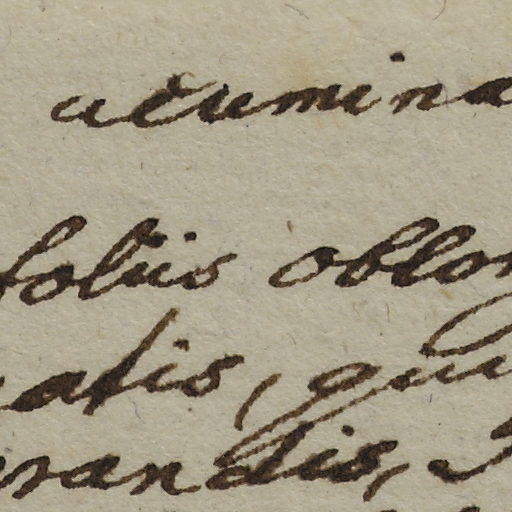 acumina
foliis oblon
atis, qui
randis,